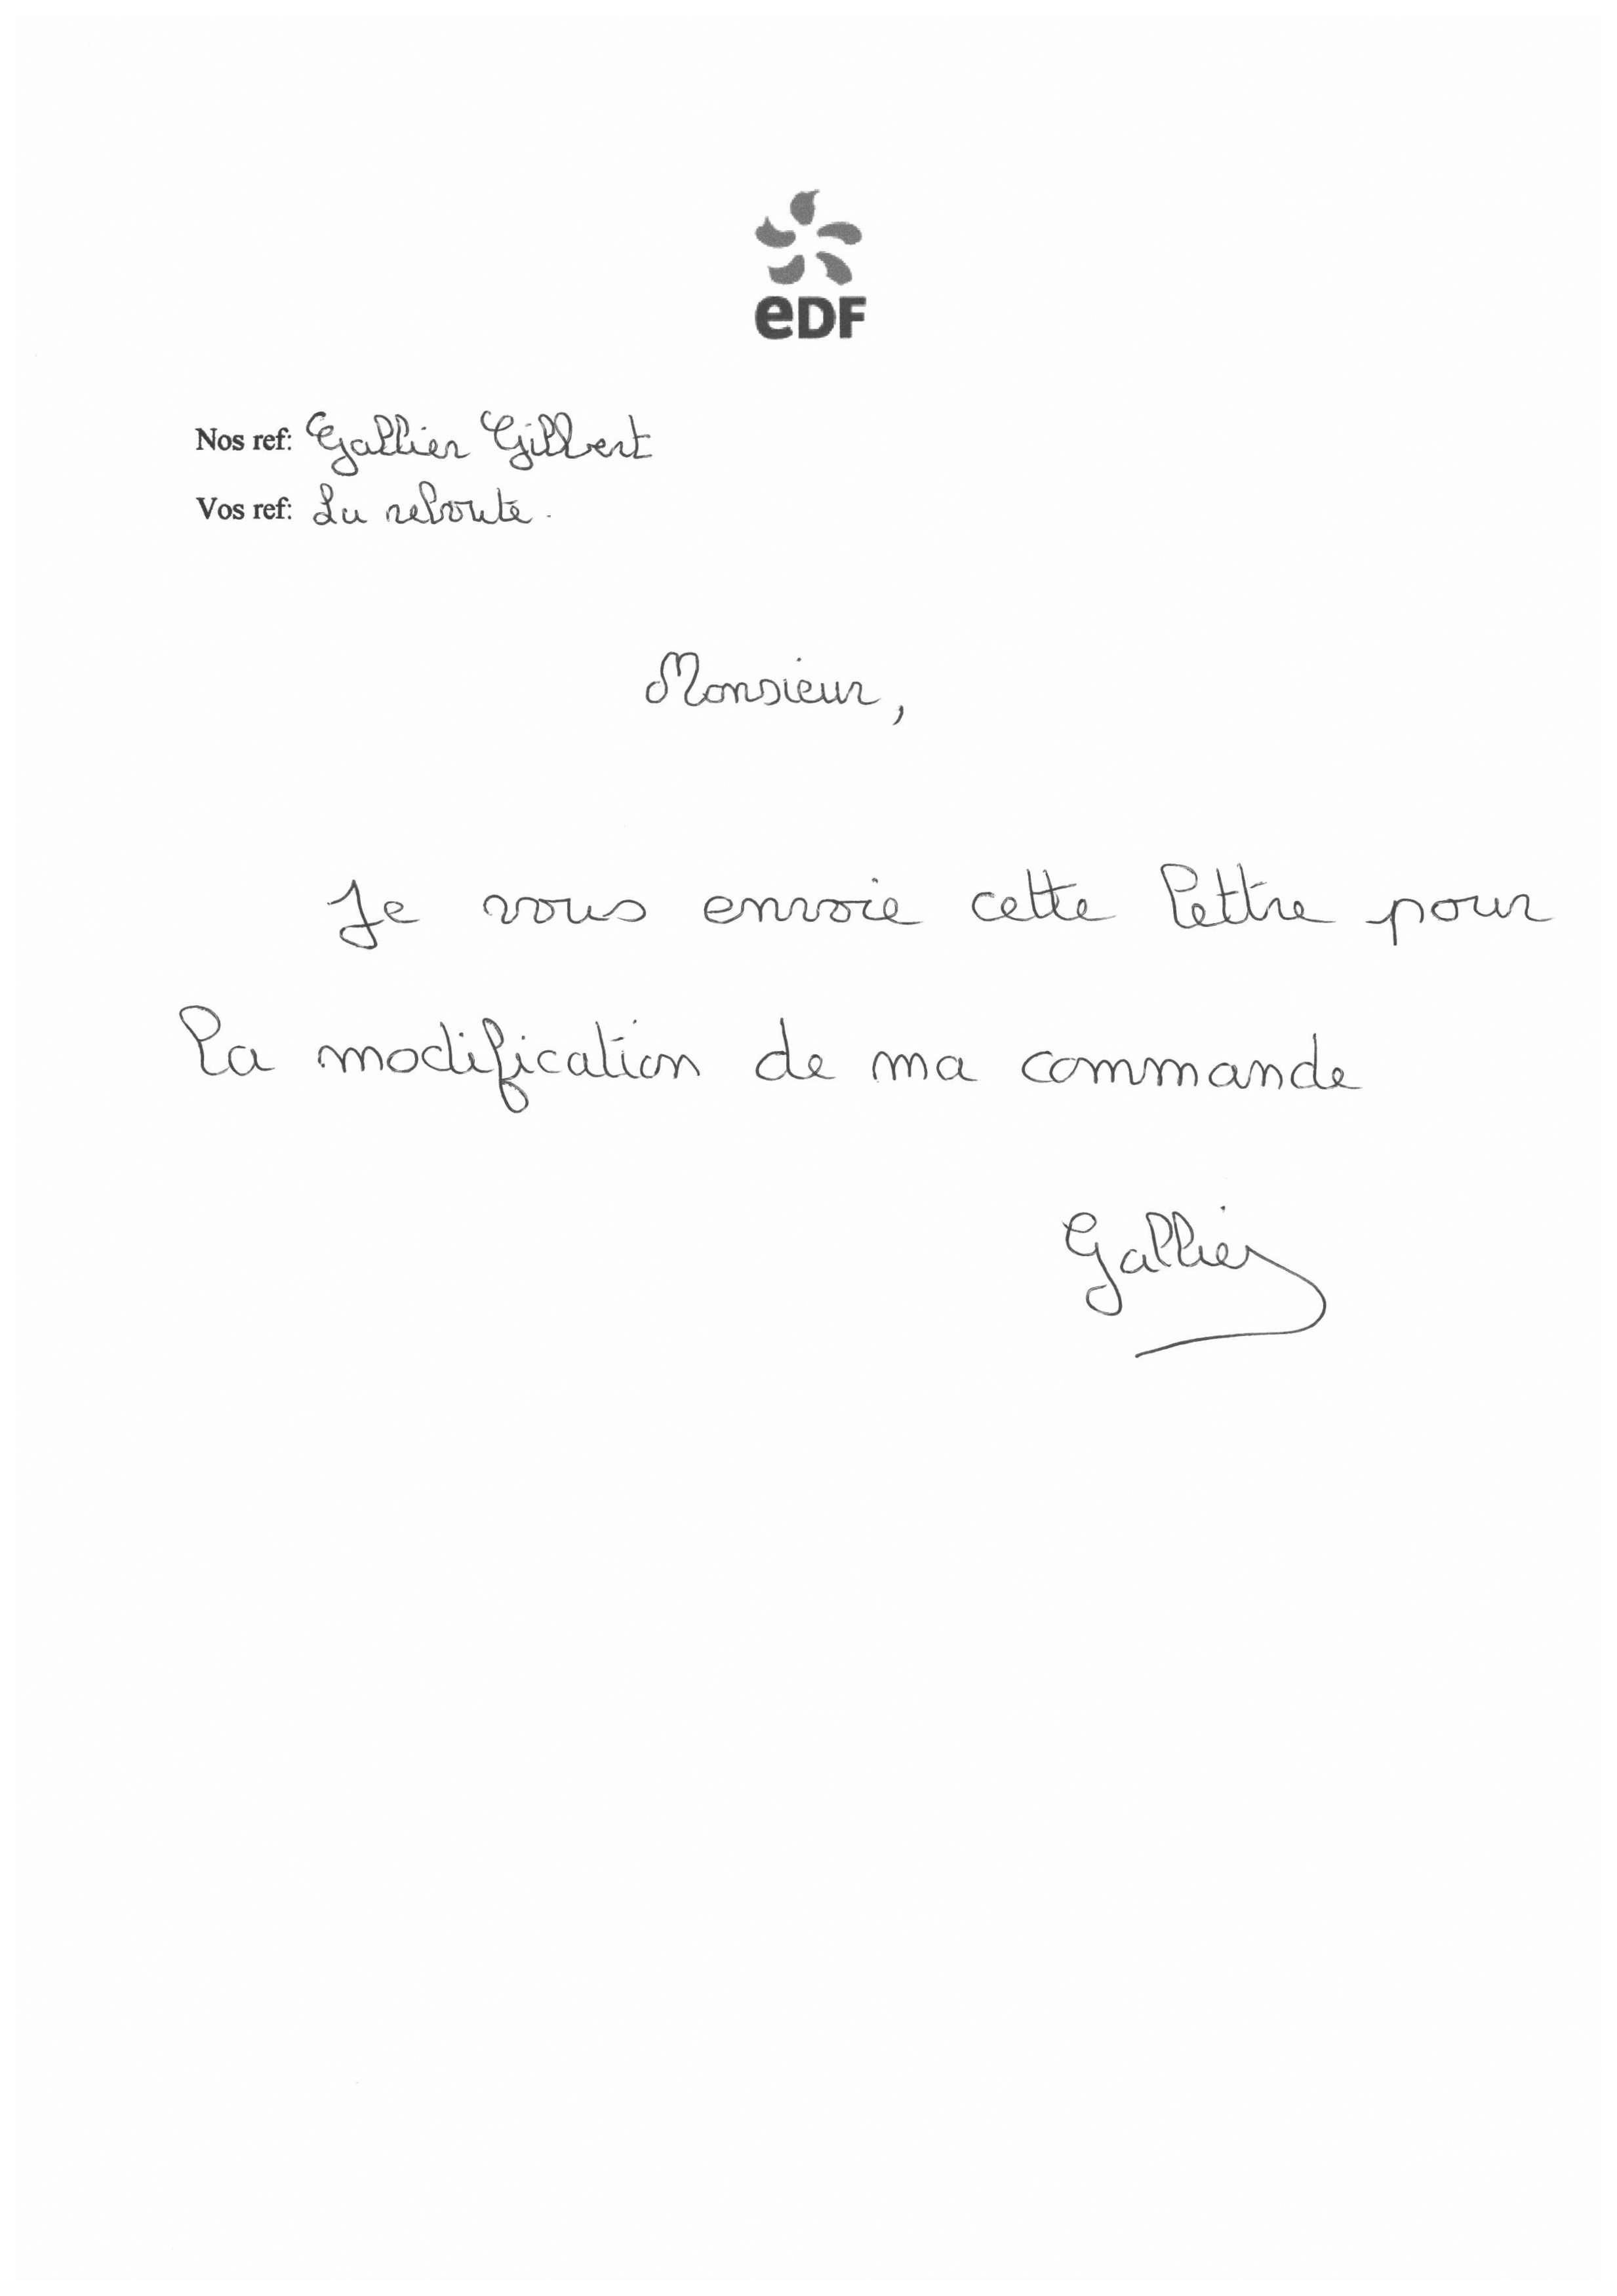 eDF
Nos ref: Gallier Gilbert
Vos ref: La reboute.
Monsieur,
Je vous envoie cette lettre pour
la modification de ma commande
Gallier